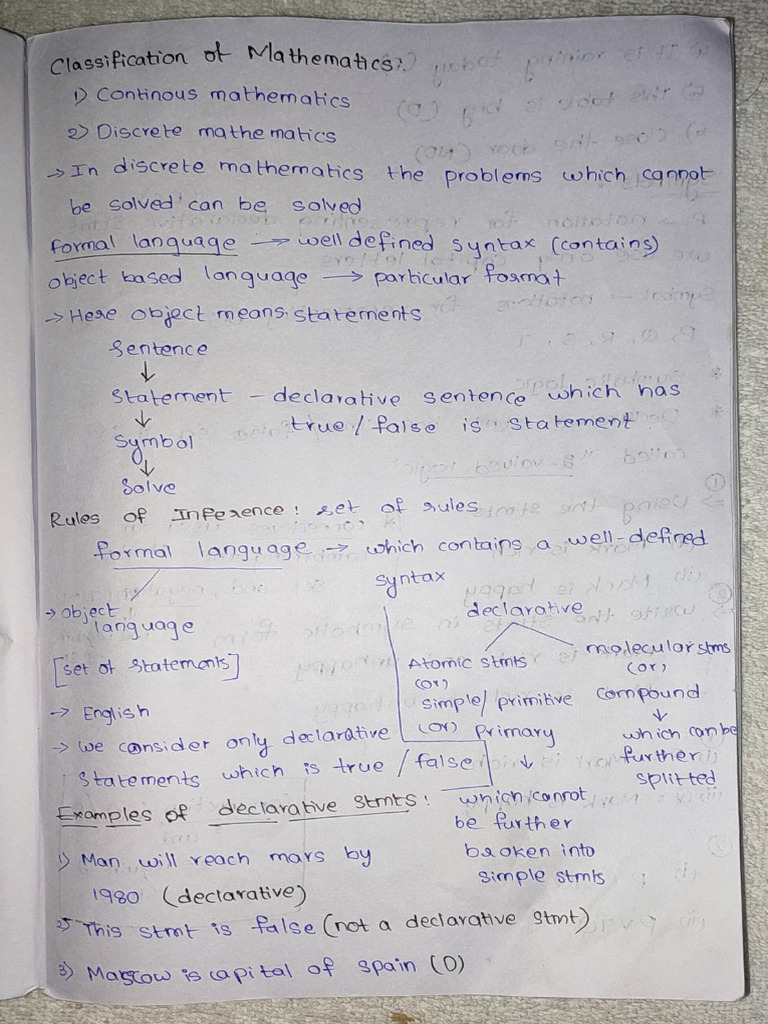 Classification of Mathematics:
1) Continous mathematics
2) Discrete mathematics
→ In discrete mathematics the problems which cannot
be solved can be solved
formal language → well defined syntax (contains)
object based language → particular format
→ Here object means statements
Sentence
↓
Statement - declarative sentence which has
true / false is statement
↓
Symbol
↓
Solve
Rules of Inference: set of rules
formal language → which contains a well-defined
syntax
→ object
language
[set of statements]
→ English
→ we consider only declarative
statements which is true / false
declarative
Atomic stmts
(or)
simple/ primitive
(or) primary
↓
which cannot
be further
broken into
simple stmts
molecular stms
(or)
compound
↓
which can be
further
splitted
Examples of declarative stmts:
1) Man will reach mars by
1980 (declarative)
2) This stmt is false (not a declarative stmt)
3) Moscow is capital of spain (D)